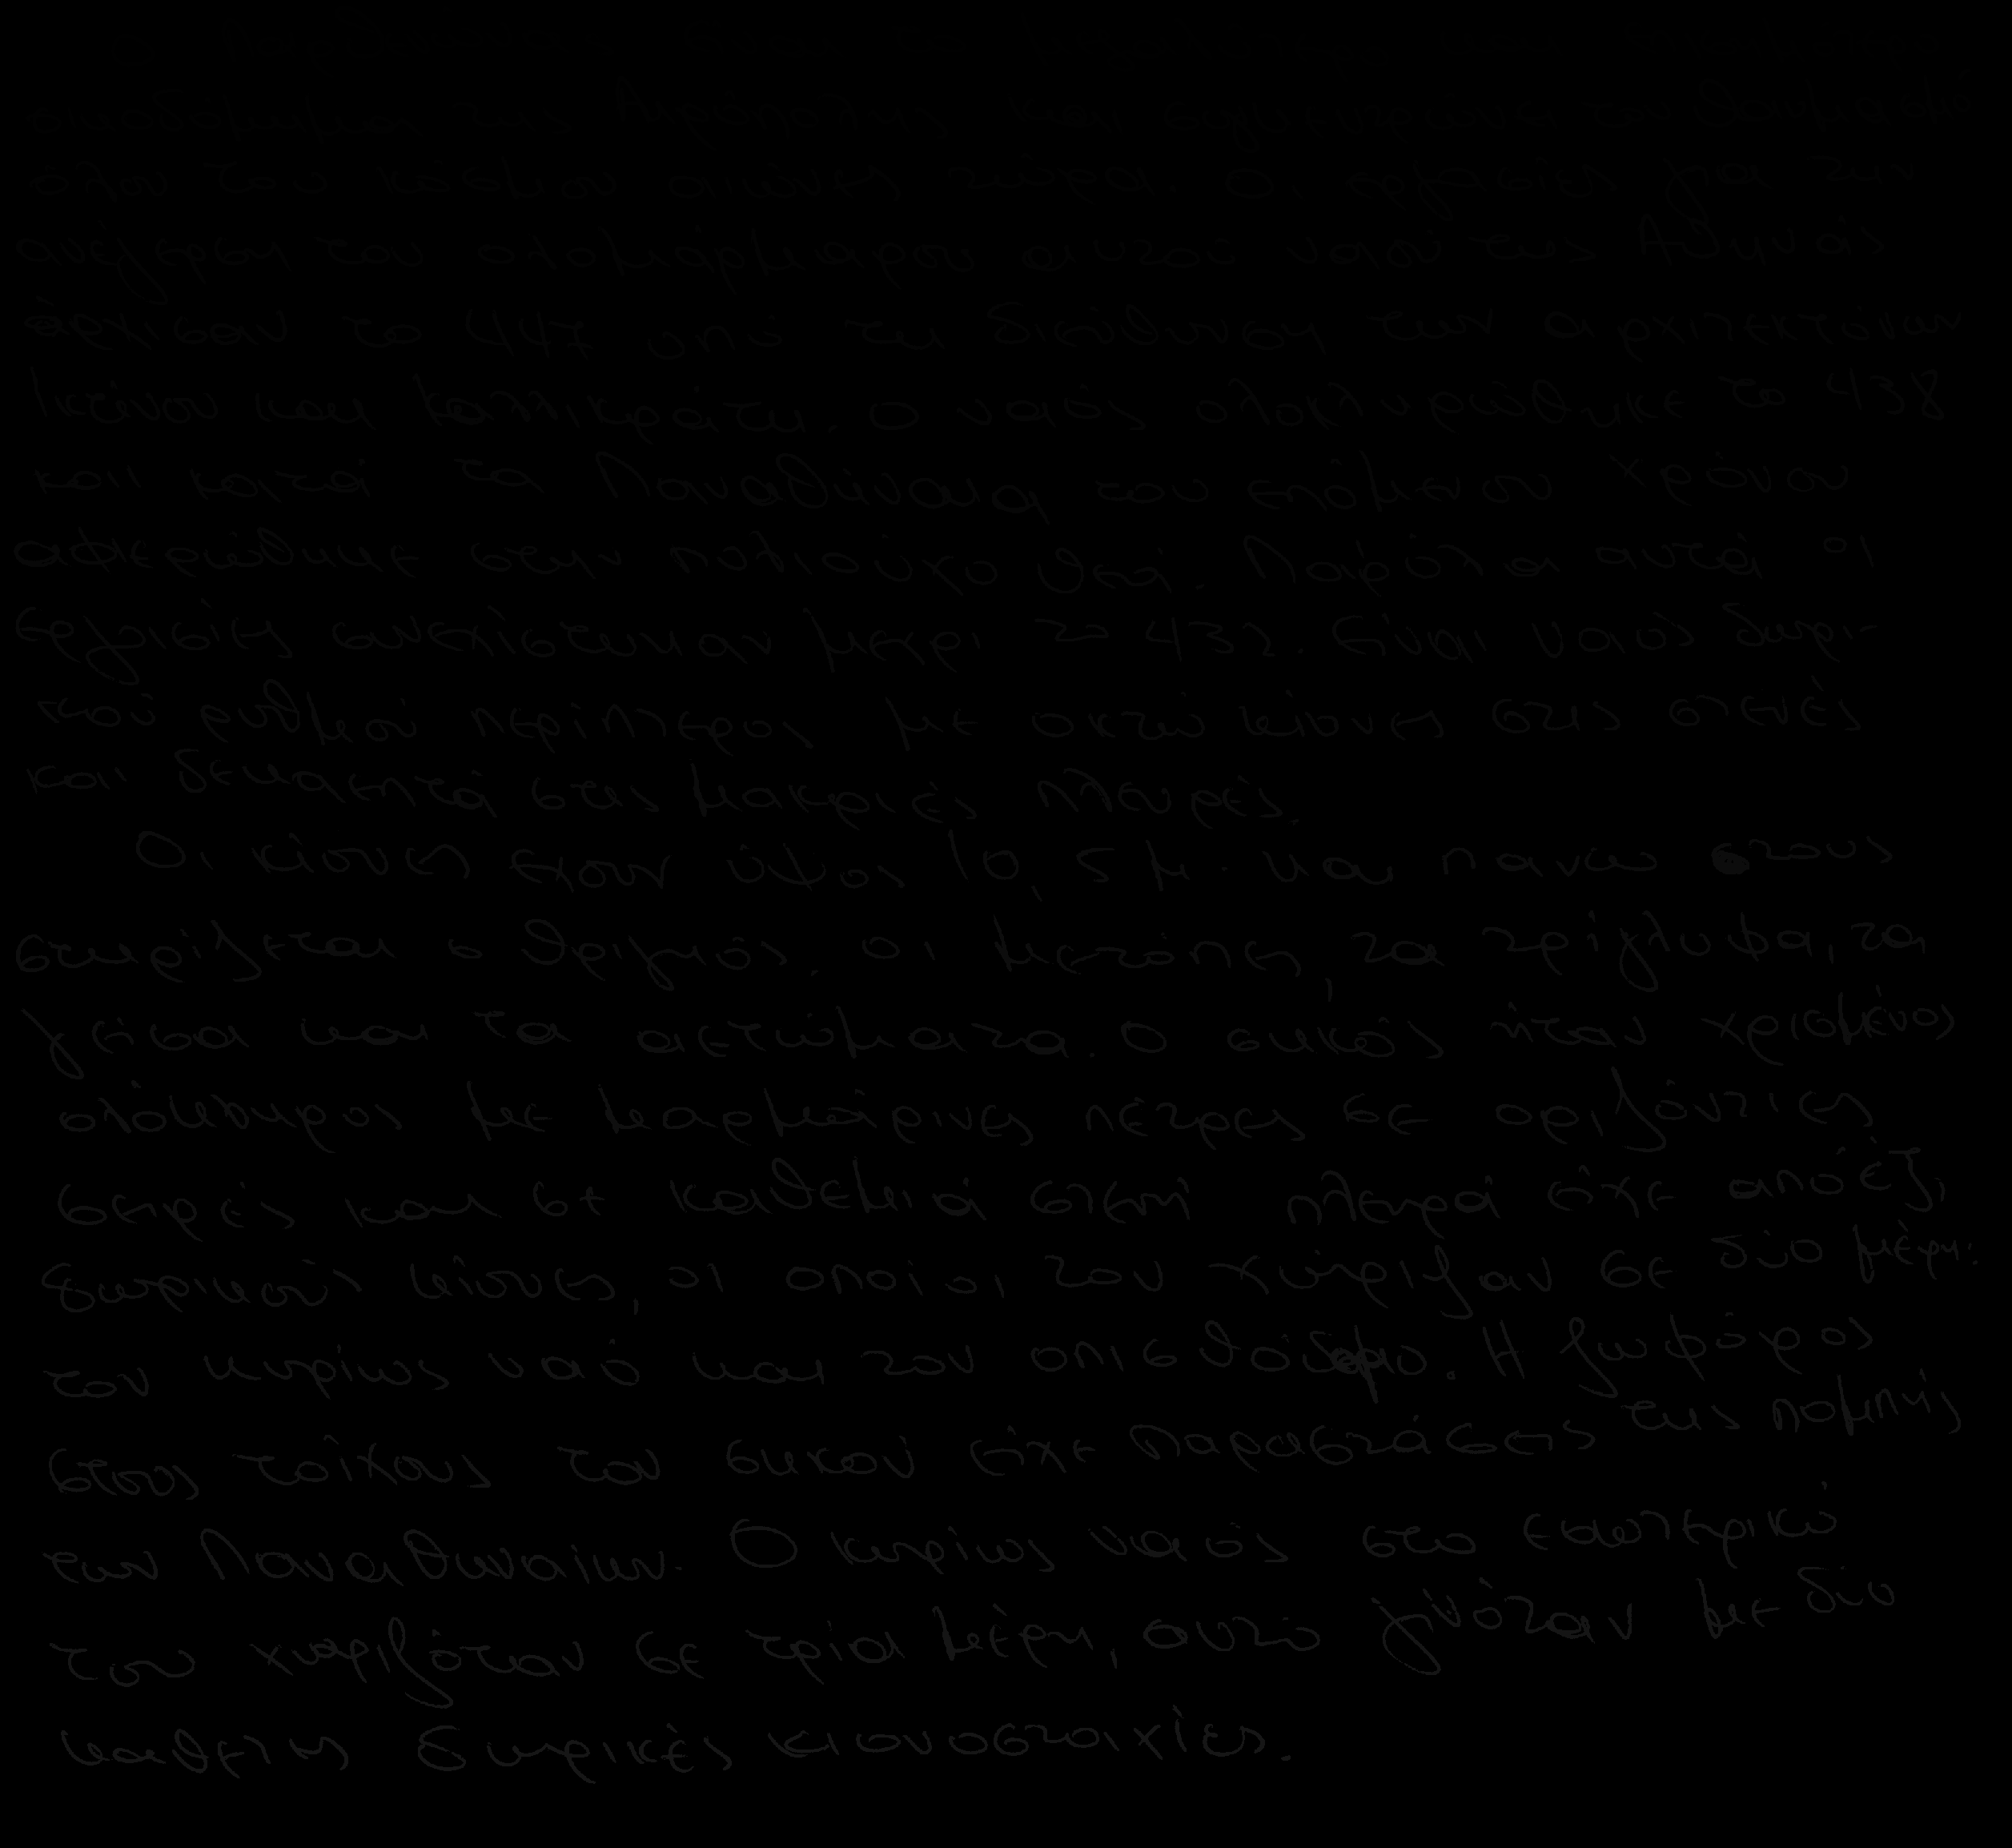 οικοδόμημα της Ακρόπολης και συγκεντρώνει τον θαυμασμό
όλου του κόσμου αιώνες τώρα. Οι εργασίες για την
ανέγερση του ολομάρμαρου αυτού ναού της Αθηνάς
άρχισαν το 447 από τη διεύθυνση των αρχιτεκτόνων
Ικτίνου και Καλλικράτη. Ο ναός ολοκληρώθηκε το 438
και κατά τα Παναθήναια του επόμενου χρόνου
αφιερώθηκε στην πολιούχο θεά. Παρόλα αυτά οι
εργασίες συνεχίστηκαν μέχρι το 432. Είναι ναός δωρι-
κού ρυθμού περίπτερος με οκτώ κίονες στις στενές
και δεκαεπτά στις μακριές πλευρές.
Οι κίονες έχουν ύψος 10,5 μ. και πάνω στους
στηρίζεται ο θριγκός, οι μετόπες, τα τρίγλυφα, τα
γείσα και τα αετώματα. Ο σηκός ήταν χτισμένος
ολόκληρος με μαρμάρινες πέτρες σε οριζόντιες
σειρές και σε καθεμιά στενή πλευρά είχε από έξι
δωρικούς κίονες, οι οποίοι τον χώριζαν σε δύο μέρη:
τον κυρίως ναό και τον οπισθόδομο. Η ζωφόρος
στους τοίχους του σηκού είχε παραστάσεις της πομπής
των Παναθηναίων. Ο κυρίως ναός στο εσωτερικό
του χωριζόταν σε τρία μέρη, αυτό γινόταν με δύο
κάθετες δωρικές κιονοστοιχίες.